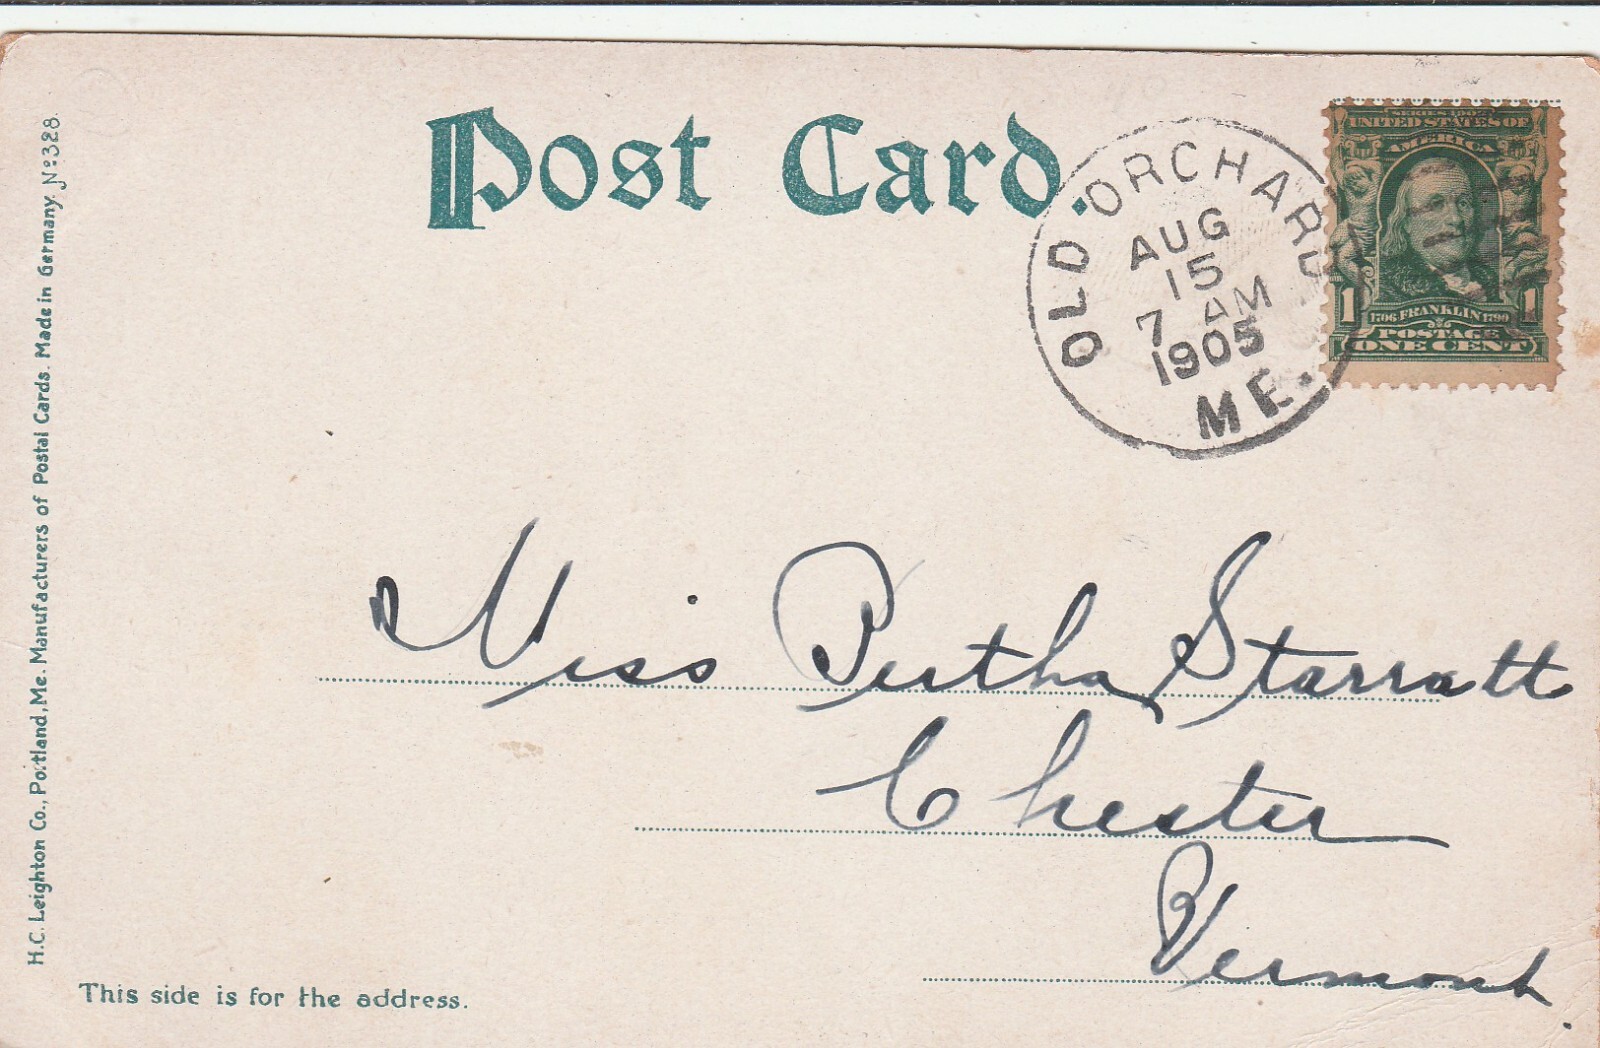 Post Card.
OLD ORCHARD
AUG
15
7 AM
1905
ME.
SERIES 1902
UNITED STATES OF
AMERICA
1 1
1706 FRANKLIN 1790
POSTAGE
ONE CENT
Miss Bertha Starratt
Chester
Vermont.
H.C. Leighton Co., Portland, Me. Manufacturers of Postal Cards. Made in Germany. No 328.
This side is for the address.